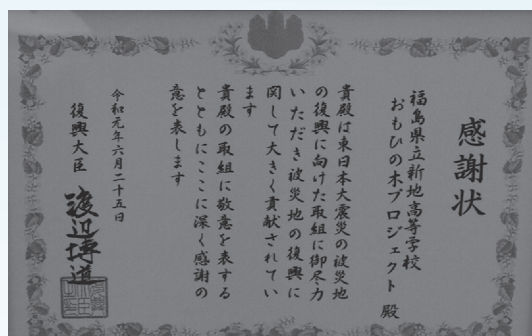 感謝状
福島県立新地高等学校
おもひの木プロジェクト 殿
貴殿は東日本大震災の被災地
の復興に向けた取組に御尽力
いただき被災地の復興に
関して大きく貢献されてい
ます
貴殿の取組に敬意を表する
とともにここに深く感謝の
意を表します
令和元年六月二十五日
復興大臣 渡辺博道